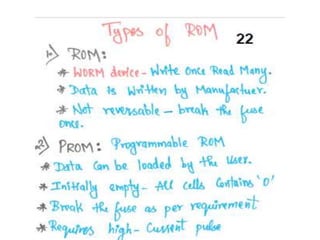 Types of ROM
22
1) ROM:
* WORM device - Write Once Read Many.
* Data is Written by Manufactuer.
* Not reversable - break the fuse
once.
2) PROM: Programmable ROM
* Data Can be loaded by the User.
* Initially empty - All Cells Contains '0'
* Break the fuse as per requirement
* Requires high - Current pulse